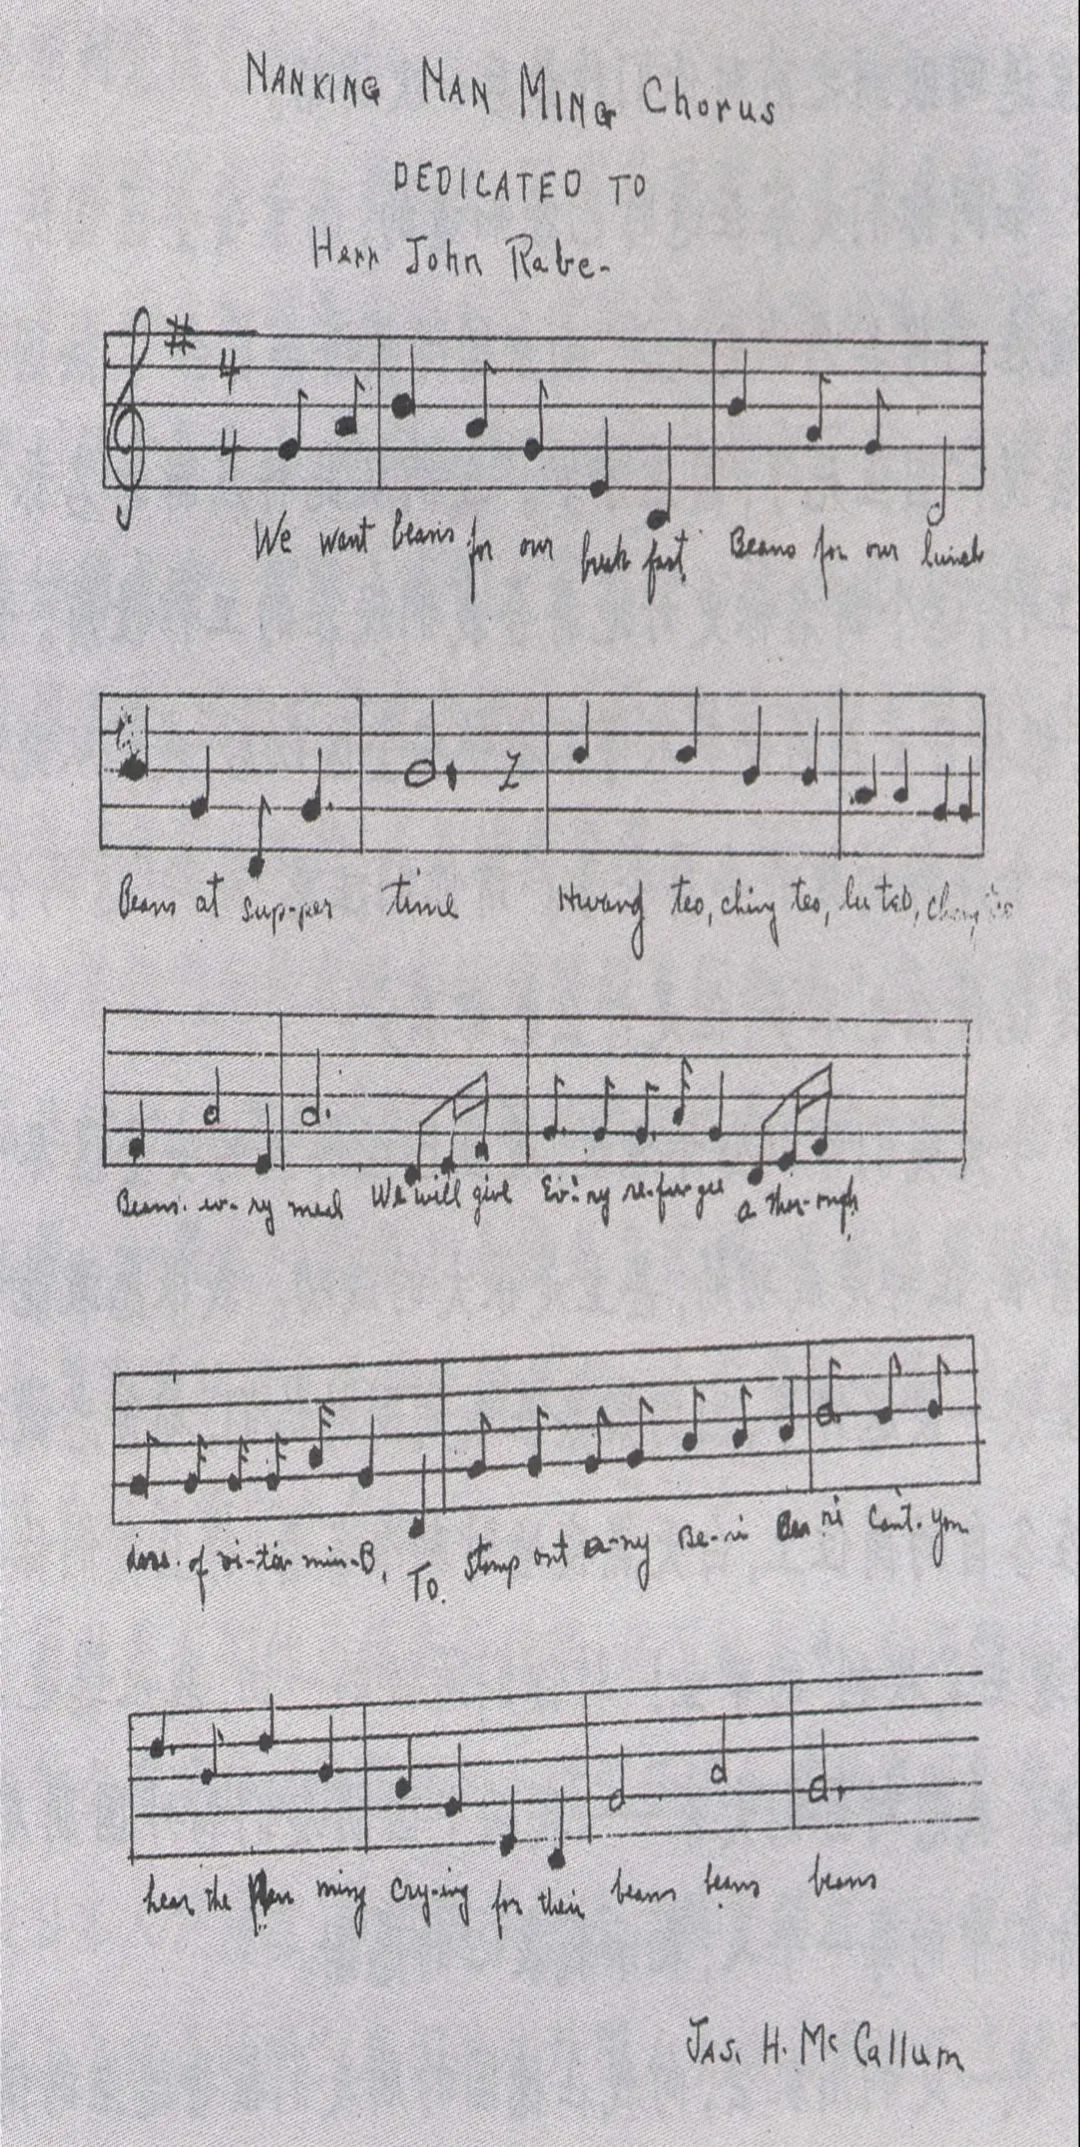 NANKING NAN MING Chorus
DEDICATED TO
Herr John Rabe-
4
4
We want beans for our break fast, Beans for our lunch
Beans at sup-per time Hwang teo, ching teo, lu teo,
Beans. ev-ry meal We will give Ev'-ry re-fu-gee a thor-ough
dose. of vi-ta-min-B, To. Stamp out a-ny Be-ri Be ri Can't. you
hear the Nan ming cry-ing for their beans beans beans
JAS. H. Mc Callum